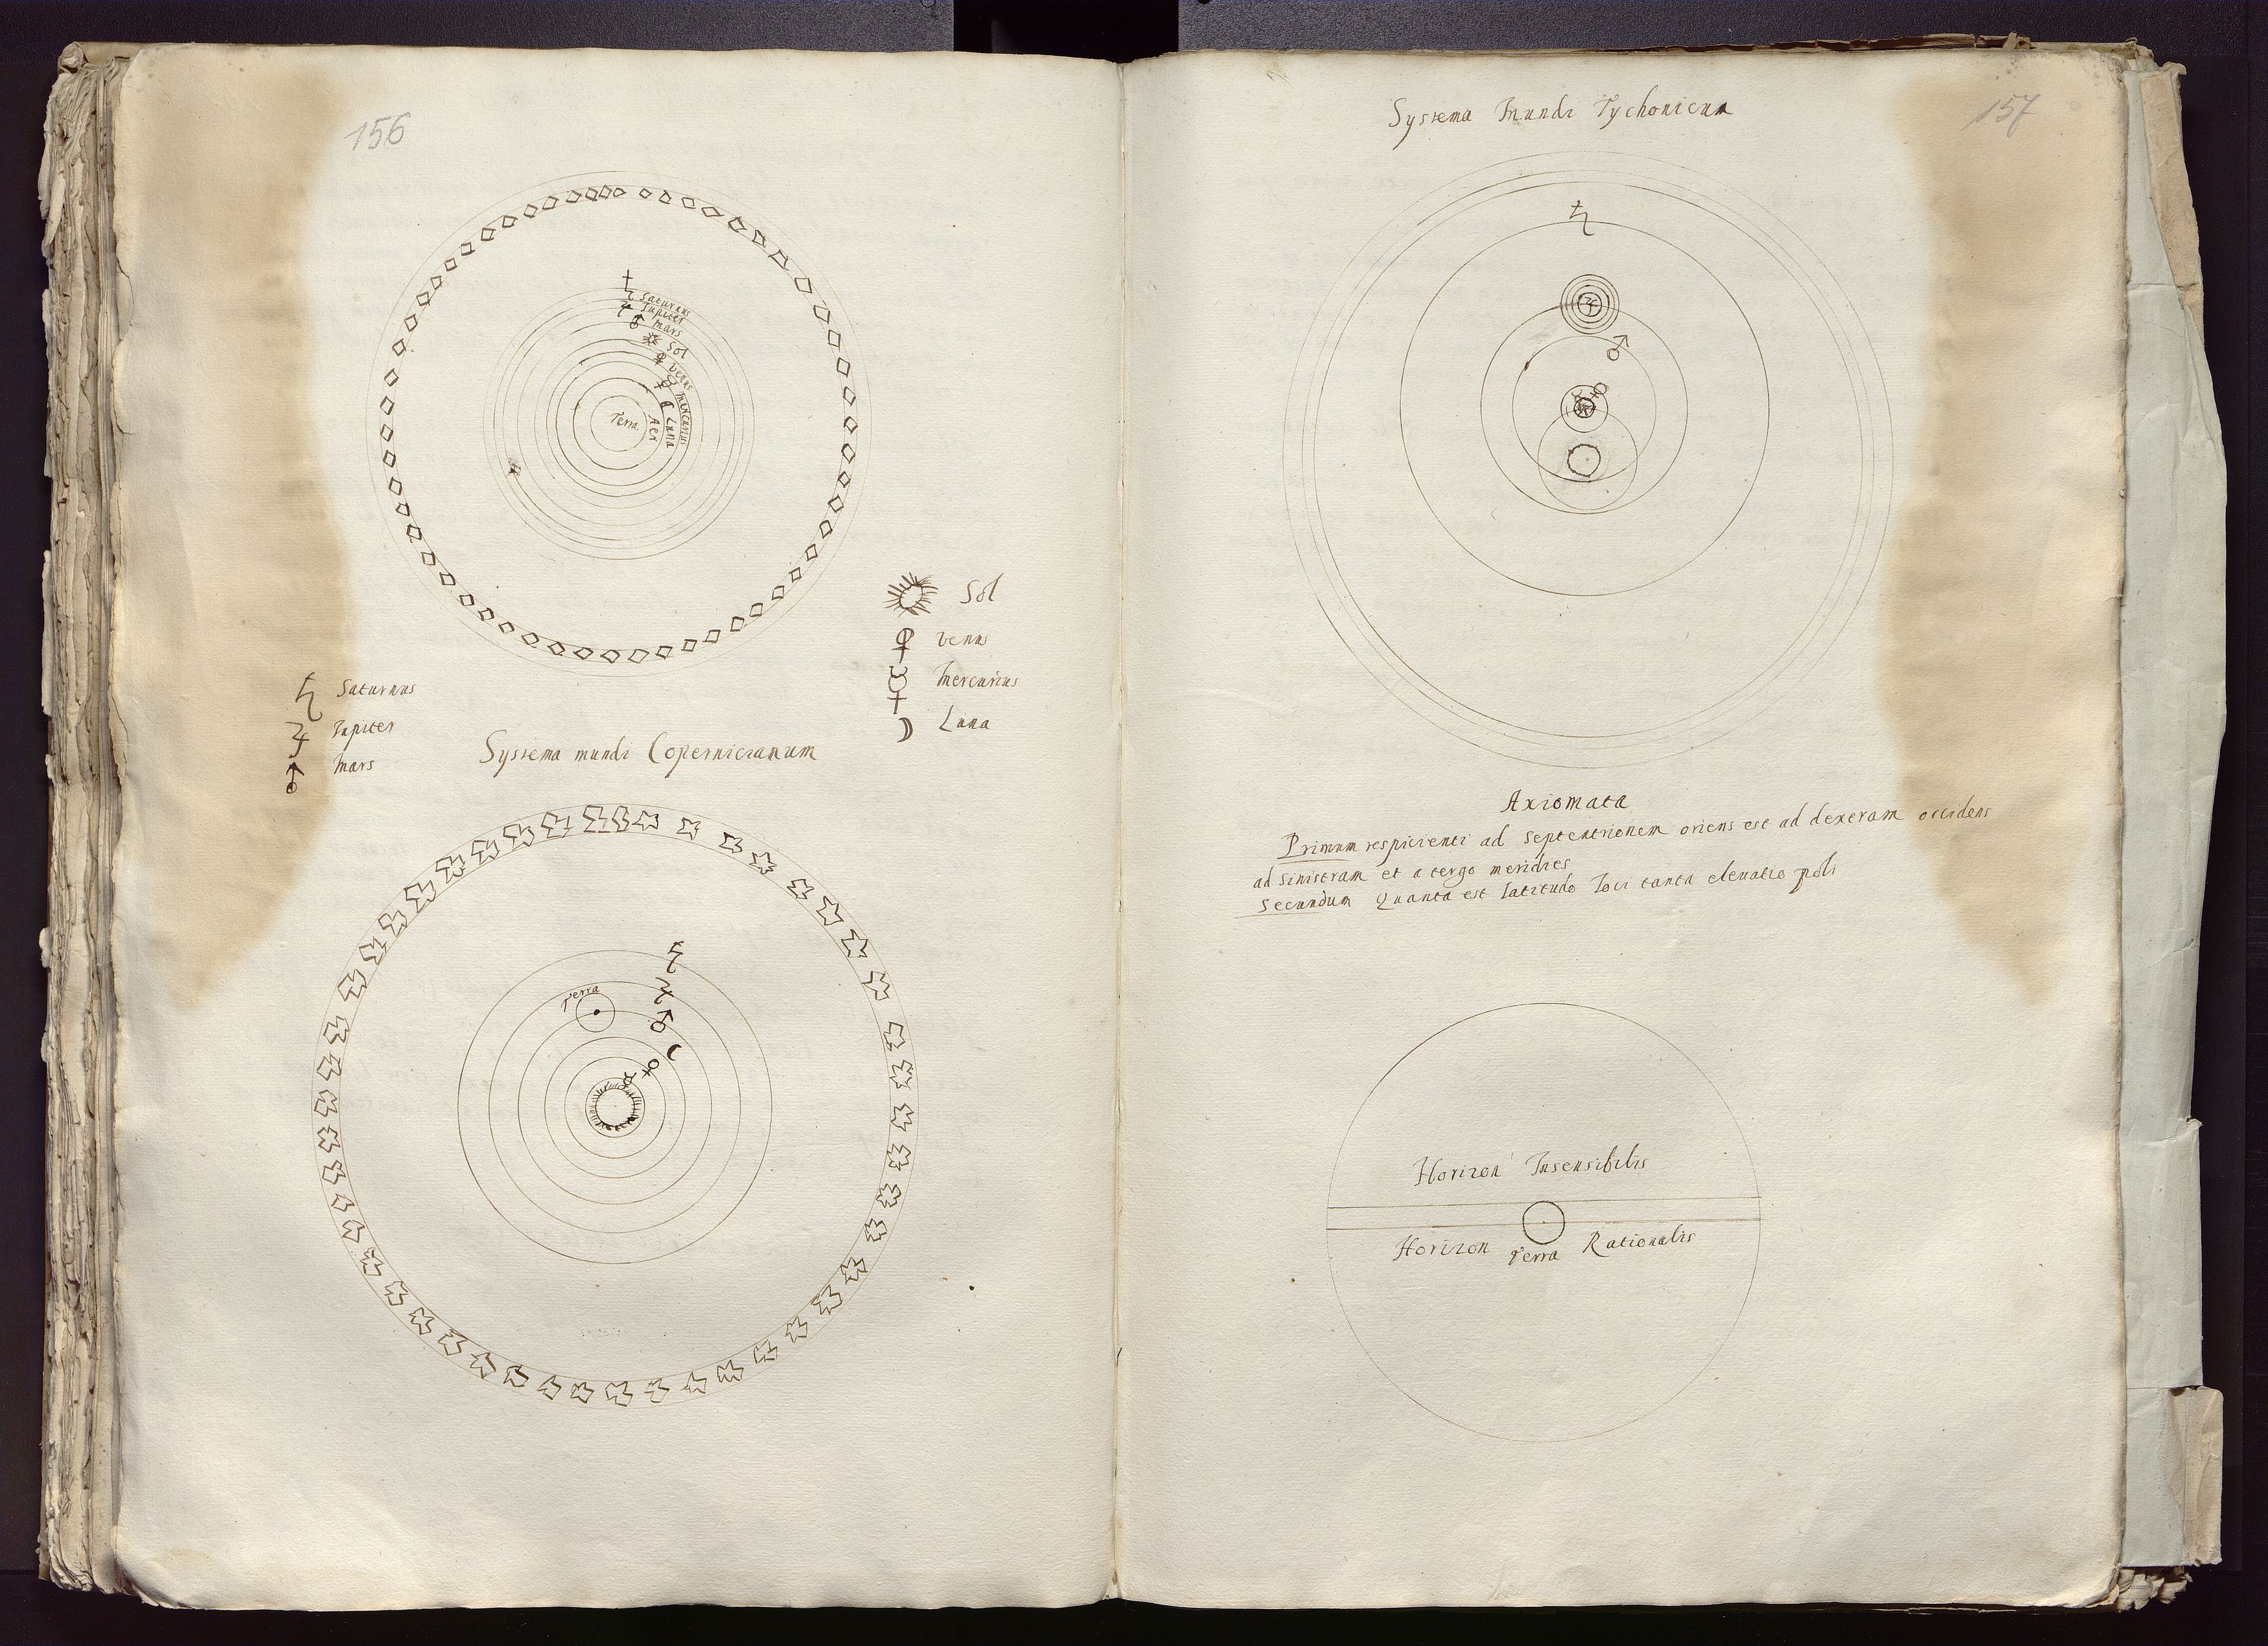 156
♄ Saturnus
♃ Iupiter
♂ Mars
Sol
♀ venus
☿ Mercurius
☾ Luna
Aer
Terra
Sol
♀ venus
☿ Mercurius
☽ Luna
♄ Saturnus
♃ Iupiter
♂ Mars
Systema mundi Copernicianum
♄
♃
Terra
♂
☾
♀
☿
157
Systema Mundi Tychonicum
♄
♃
♂
♀
☿
Axiomata
Primum respicienti ad septentrionem oriens est ad dexeram occidens
ad sinistram et a tergo meridies
Secundum Quanta est latitudo loci tanta eleuatio poli
Horizon Insensibilis
Horizon Terra Rationalis